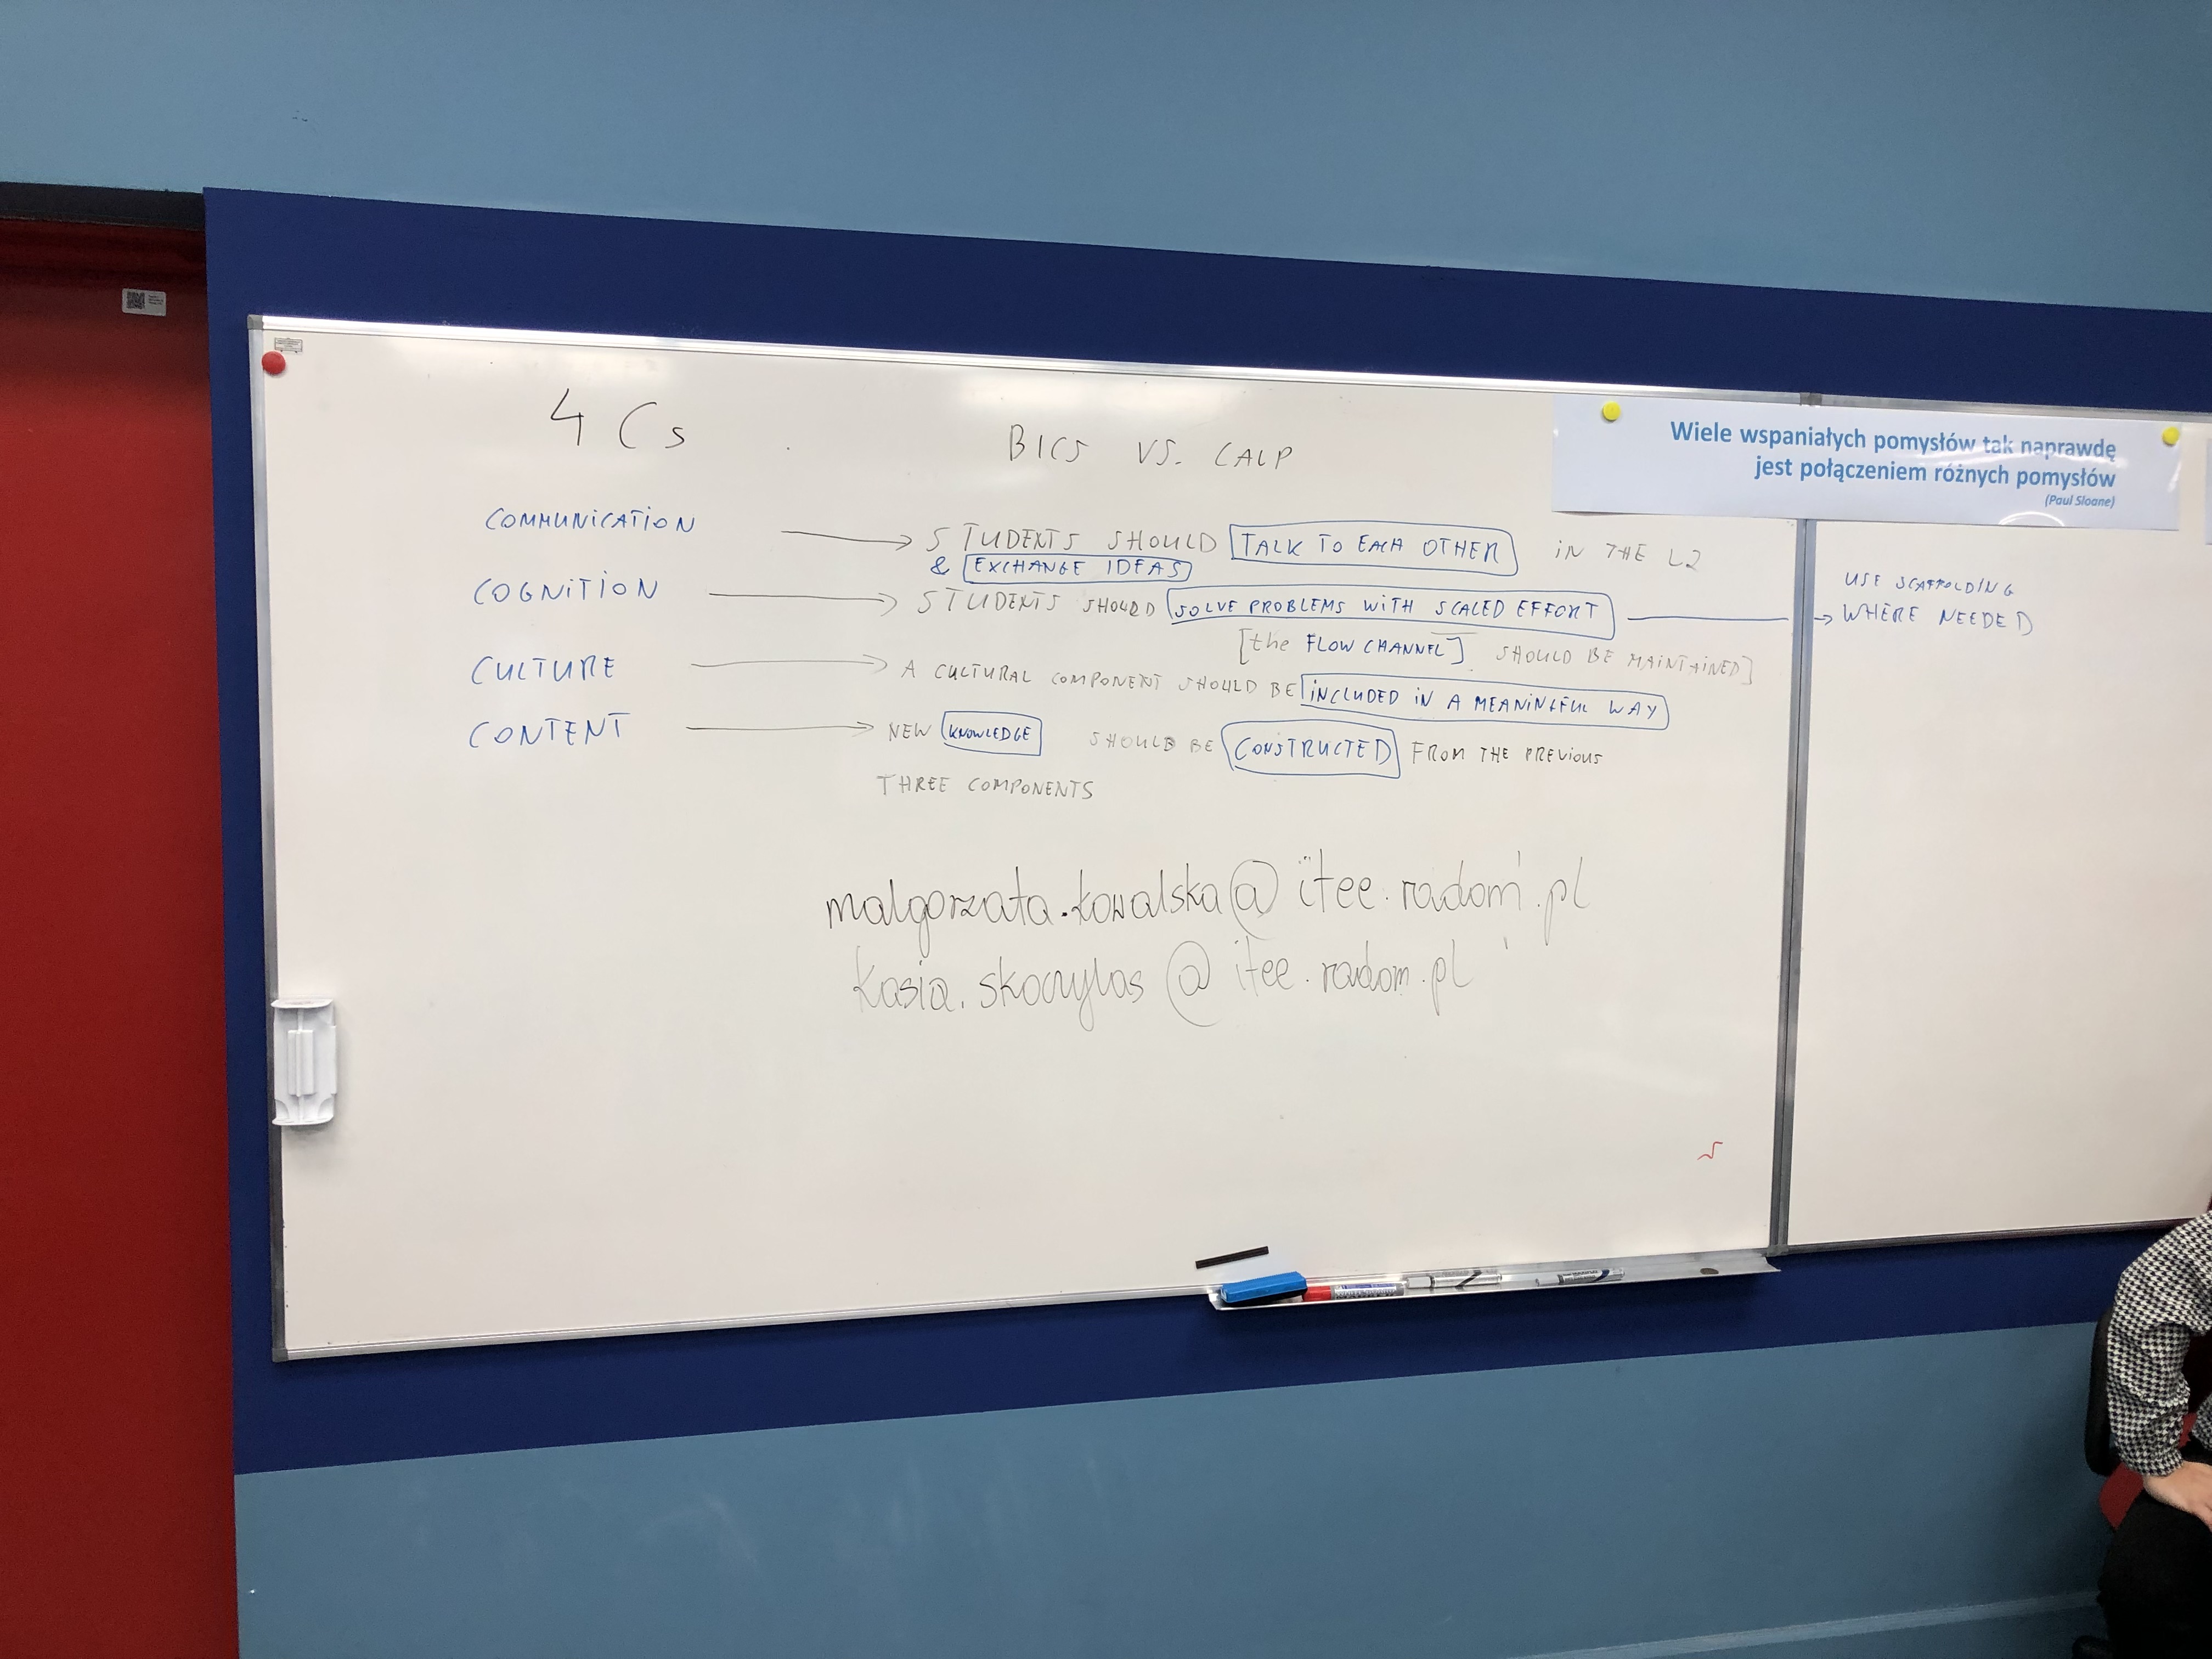 4 Cs
BICS VS. CALP
Wiele wspaniałych pomysłów tak naprawdę
jest połączeniem różnych pomysłów
(Paul Sloane)
COMMUNICATION → STUDENTS SHOULD TALK TO EACH OTHER IN THE L2
& EXCHANGE IDEAS
COGNITION → STUDENTS SHOULD SOLVE PROBLEMS WITH SCALED EFFORT → USE SCAFFOLDING
WHERE NEEDED
[the FLOW CHANNEL] SHOULD BE MAINTAINED]
CULTURE → A CULTURAL COMPONENT SHOULD BE INCLUDED IN A MEANINGFUL WAY
CONTENT → NEW KNOWLEDGE SHOULD BE CONSTRUCTED FROM THE PREVIOUS
THREE COMPONENTS
malgorzata.kowalska@itee.radom.pl
kasia.skoczylas@itee.radom.pl